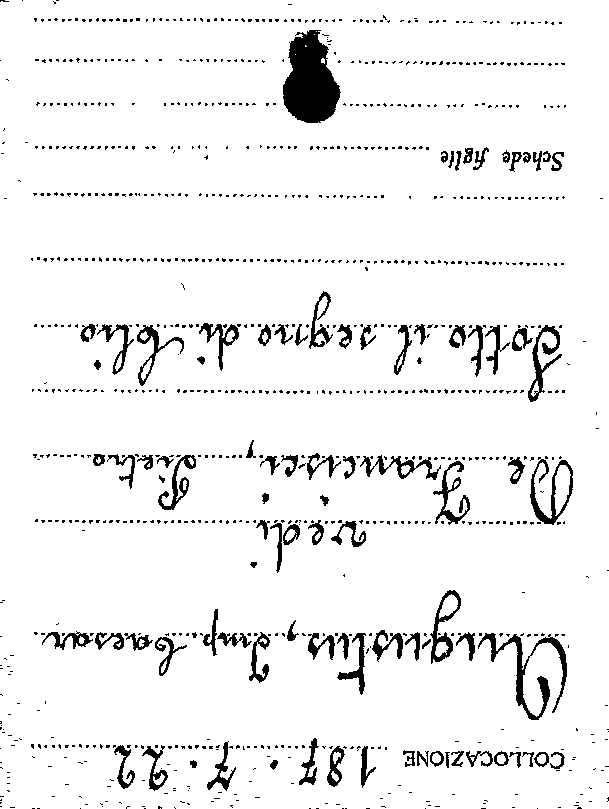 COLLOCAZIONE 187.7.22
Augustus, Imp. Caesar
vedi
De Francisci, Pietro
Sotto il segno di Clio
Schede figlie